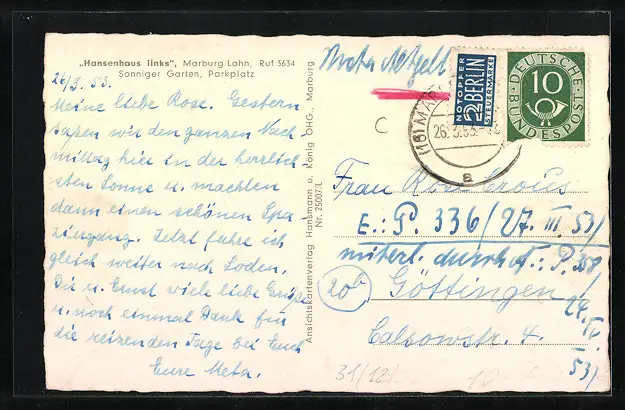 „Hansenhaus links", Marburg/Lahn, Ruf 3634
Sonniger Garten, Parkplatz
26/3. 53.
Meine liebe Rose. Gestern
sassen wir den ganzen Nach-
mittag hier in der herrlich-
sten Sonne u. machten
dann einen schönen Spa
ziergang. Jetzt fahre ich
gleich weiter nach Loden.
Dir u. Ernst viele liebe Grüße
u. noch einmal Dank für
die reizenden Tage bei Euch
Eure Meta.
Ansichtskartenverlag Hansmann u. König OHG., Marburg
Nr. 25007/L
NOTOPFER
2 BERLIN
STEUERMARKE
DEUTSCHE
10
BUNDESPOST
(16) MAR
26.3.53
a
C
Frau Rose
E.: P. 336/27. III. 53/
mitert. durch P. 38/
20b
Göttingen
24.
IV.
53/
Calsowstr. 4.
31/12/